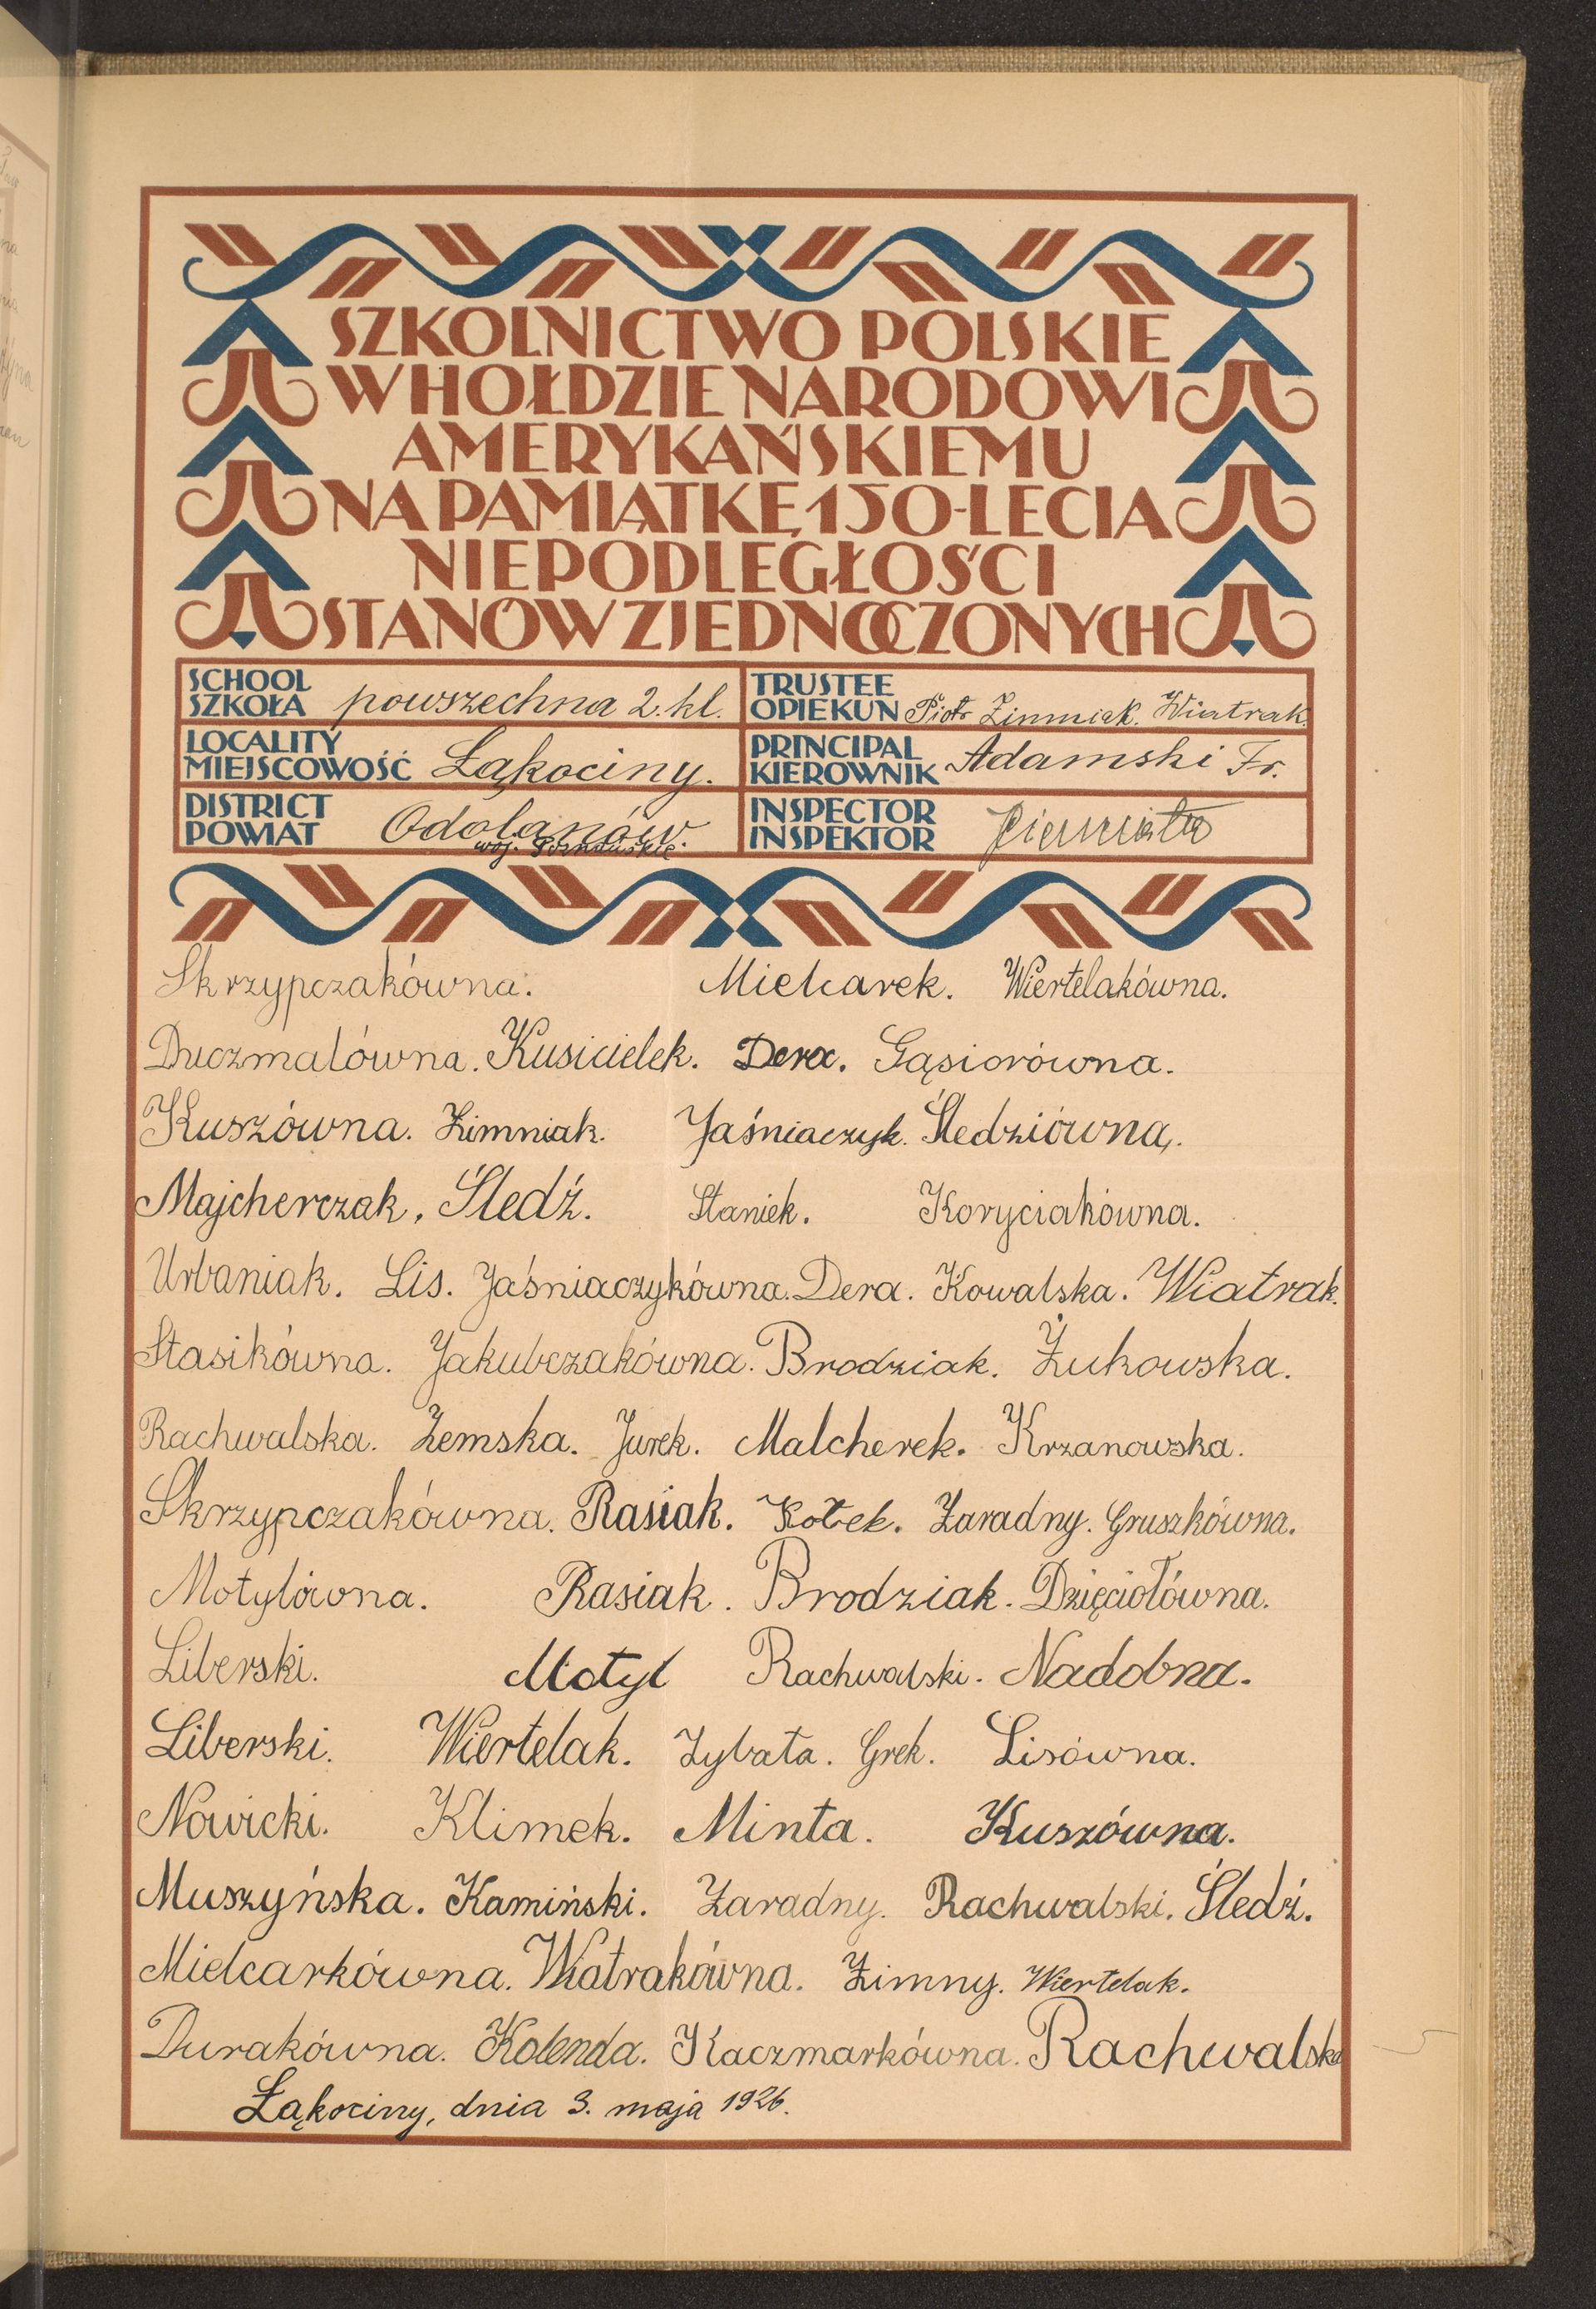 SZKOLNICTWO POLSKIE
W HOŁDZIE NARODOWI
AMERYKAŃSKIEMU
NA PAMIĄTKĘ 150-LECIA
NIEPODLEGŁOŚCI
STANÓW ZJEDNOCZONYCH
SCHOOL
SZKOŁA powszechna 2. kl.
TRUSTEE
OPIEKUN Piotr Zimniak. Wiatrak.
LOCALITY
MIEJSCOWOŚĆ Łąkociny.
PRINCIPAL
KIEROWNIK Adamski Fr.
DISTRICT
POWIAT Odolanów.
woj. Poznańskie.
INSPECTOR
INSPEKTOR
Skrzypczakówna. Mielcarek. Wiertelakówna.
Duczmalówna. Kusicielek. Dera. Gąsiorówna.
Kuszówna. Zimniak. Jaśniaczyk. Śledziówna.
Majcherczak. Śledź. Staniek. Koryciakówna.
Urbaniak. Lis. Jaśniaczykówna. Dera. Kowalska. Wiatrak.
Stasikówna. Jakubczakówna. Brodziak. Żukowska.
Rachwalska. Zemska. Jurek. Malcherek. Krzanowska.
Skrzypczakówna. Rasiak. Kotek. Zaradny. Gruszkówna.
Motylówna. Rasiak. Brodziak. Dzięciołówna.
Liberski. Motyl Rachwalski. Nadobna.
Liberski. Wiertelak. Zybata. Grek. Lisówna.
Nowicki. Klimek. Minta. Kuszówna.
Muszyńska. Kamiński. Zaradny. Rachwalski. Śledź.
Mielcarkówna. Wiatrakówna. Zimny. Wiertelak.
Durakówna. Kolenda. Kaczmarkówna. Rachwalska
Łąkociny, dnia 3. maja 1926.